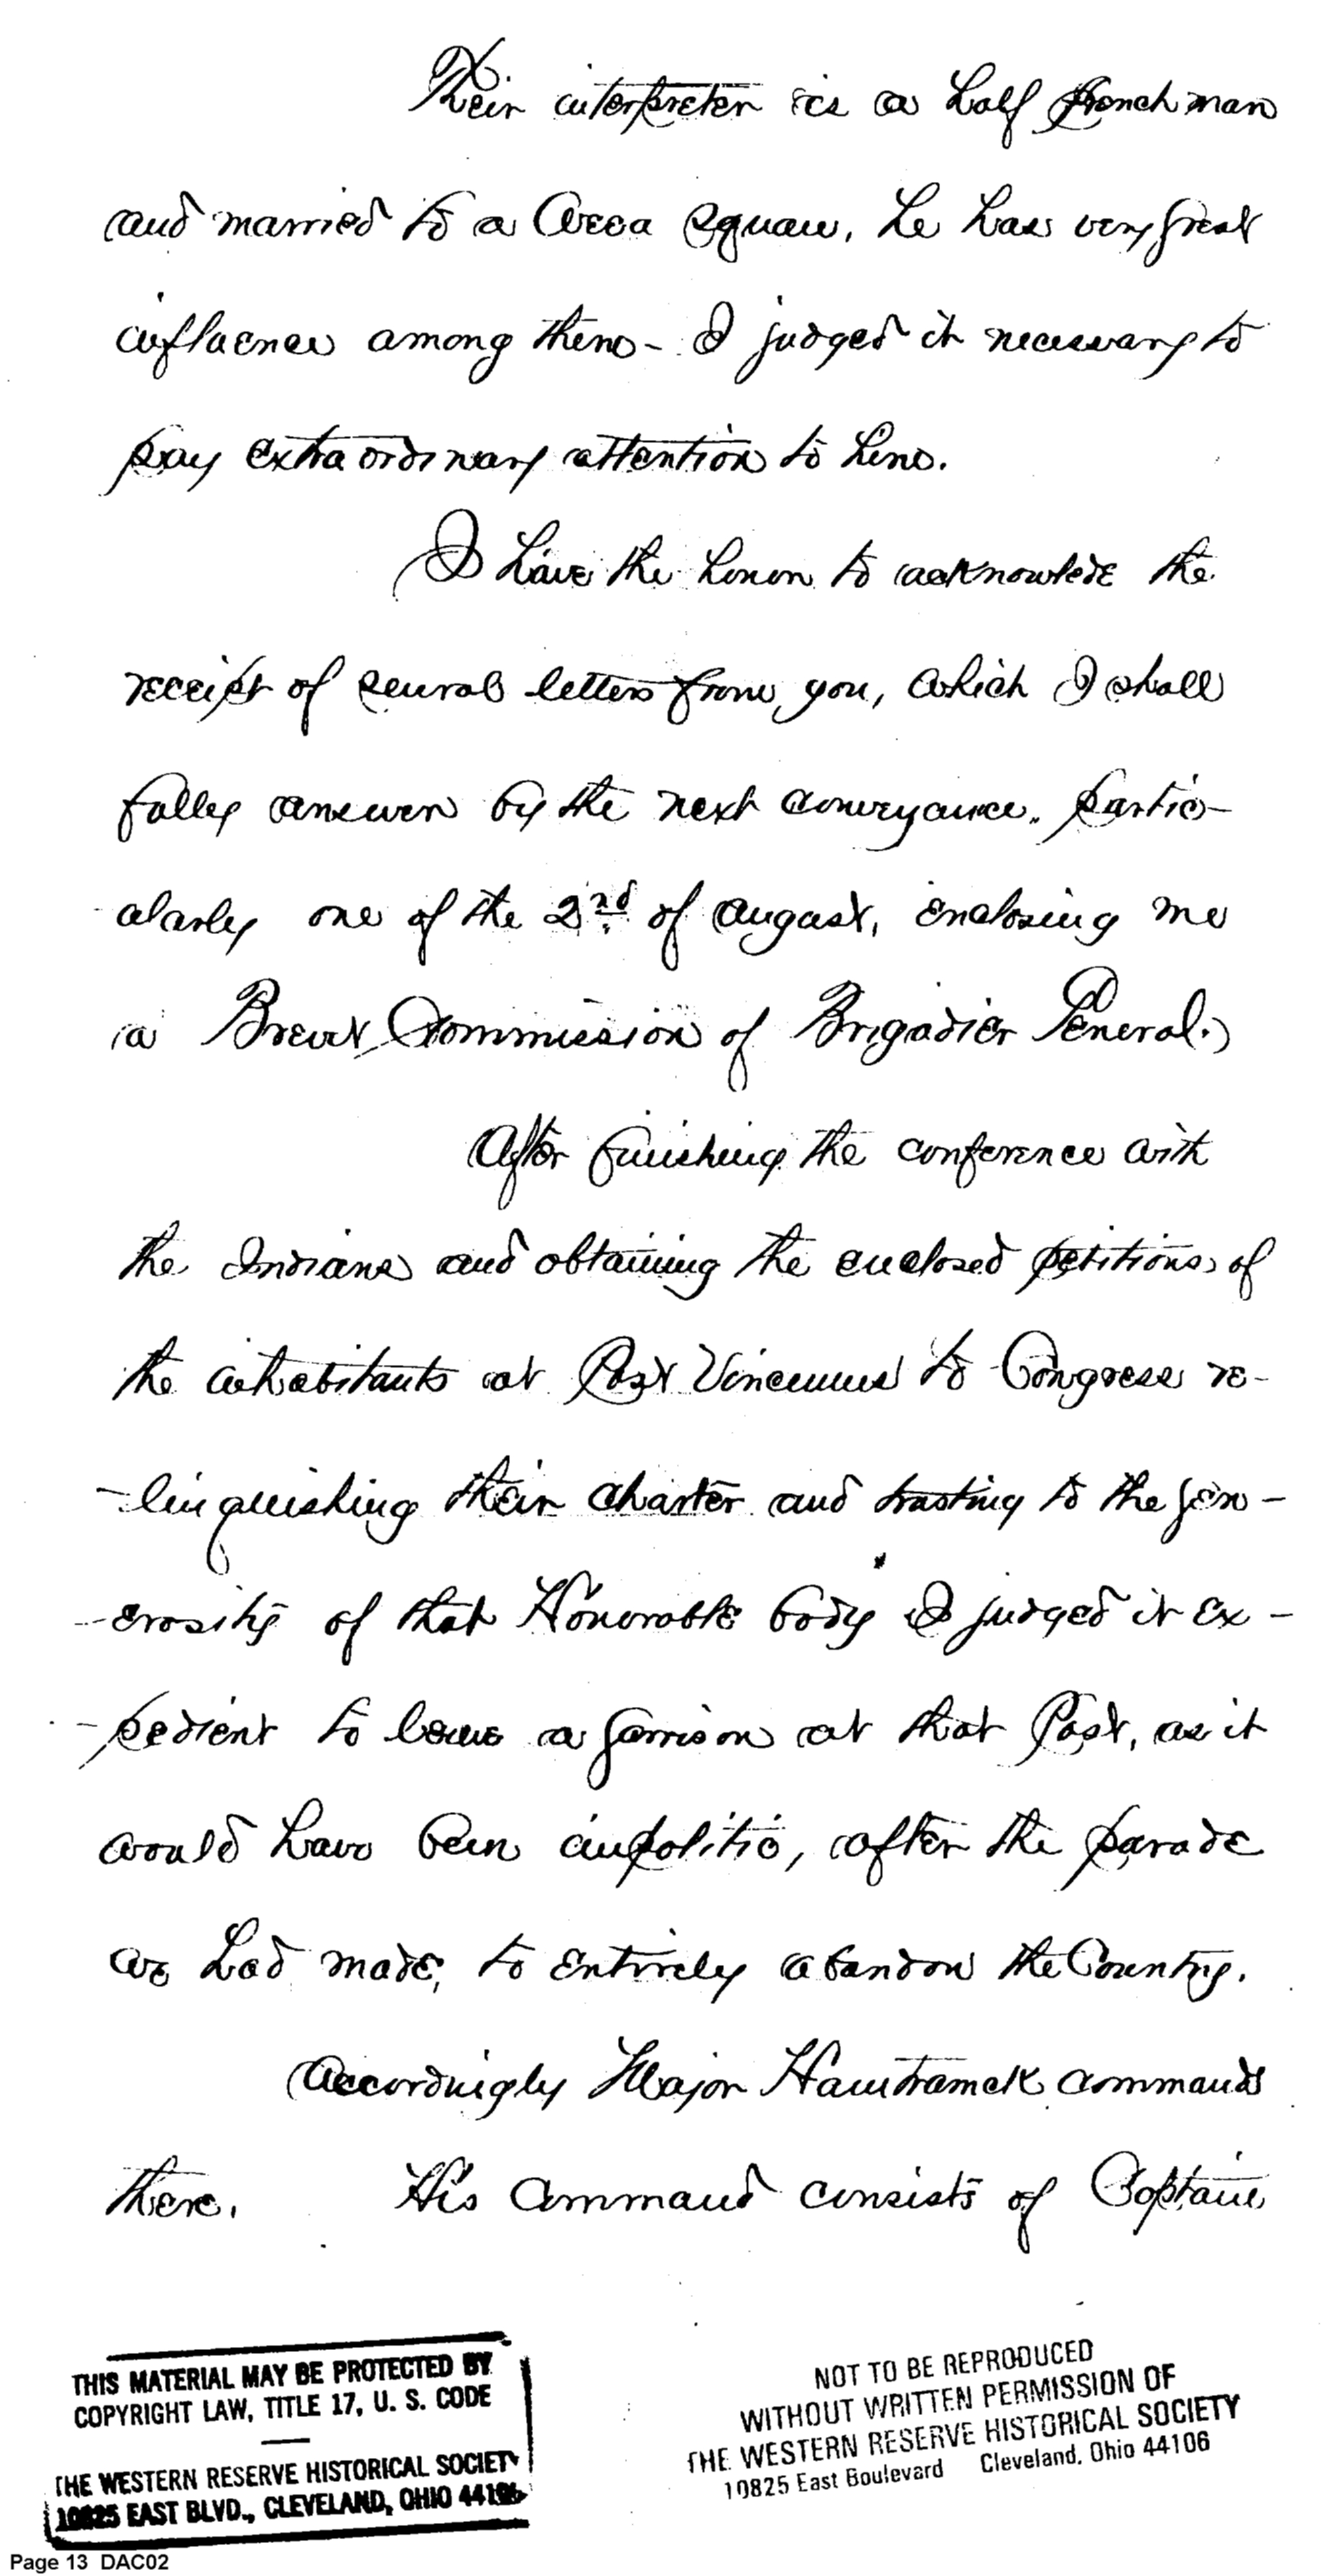 Their interpreter is a half frenchman
and married to a Weea Squaw, he has very great
influence among them - I judged it necessary to
pay extraordinary attention to him.
I have the honor to acknowlede the
receipt of several letters from you, which I shall
fully answer by the next conveyance. partic-
ularly one of the 2nd of august, enclosing me
a Brevet Commission of Brigadier General.)
After finishing the conference with
the Indians and obtaining the enclosed petitions of
the inhabitants at Post Vincennes to Congress re-
-linquishing their charter and trusting to the gen-
-erosity of that Honorable body I judged it ex-
-pedient to leave a garrison at that Post, as it
would have been impolitic, after the parade
we had made, to entirely abandon the Country.
Accordingly Major Hamtramck commands
there. His Command consists of Captain
THIS MATERIAL MAY BE PROTECTED BY
COPYRIGHT LAW, TITLE 17, U. S. CODE
THE WESTERN RESERVE HISTORICAL SOCIETY
10825 EAST BLVD., CLEVELAND, OHIO 44106
NOT TO BE REPRODUCED
WITHOUT WRITTEN PERMISSION OF
THE WESTERN RESERVE HISTORICAL SOCIETY
10825 East Boulevard Cleveland, Ohio 44106
Page 13 DAC02